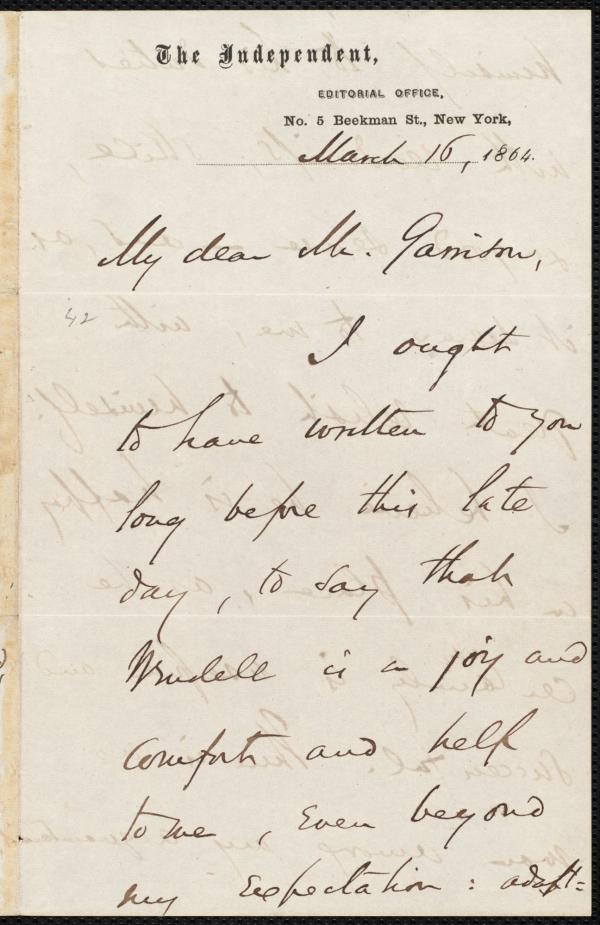 The Independent,
EDITORIAL OFFICE,
No. 5 Beekman St., New York,
March 16, 1864.
My dear Mr. Garrison,
42
I ought
to have written to you
long before this late
day, to say that
Wendell is a joy and
comfort and help
to me, even beyond
my expectation: adapt=